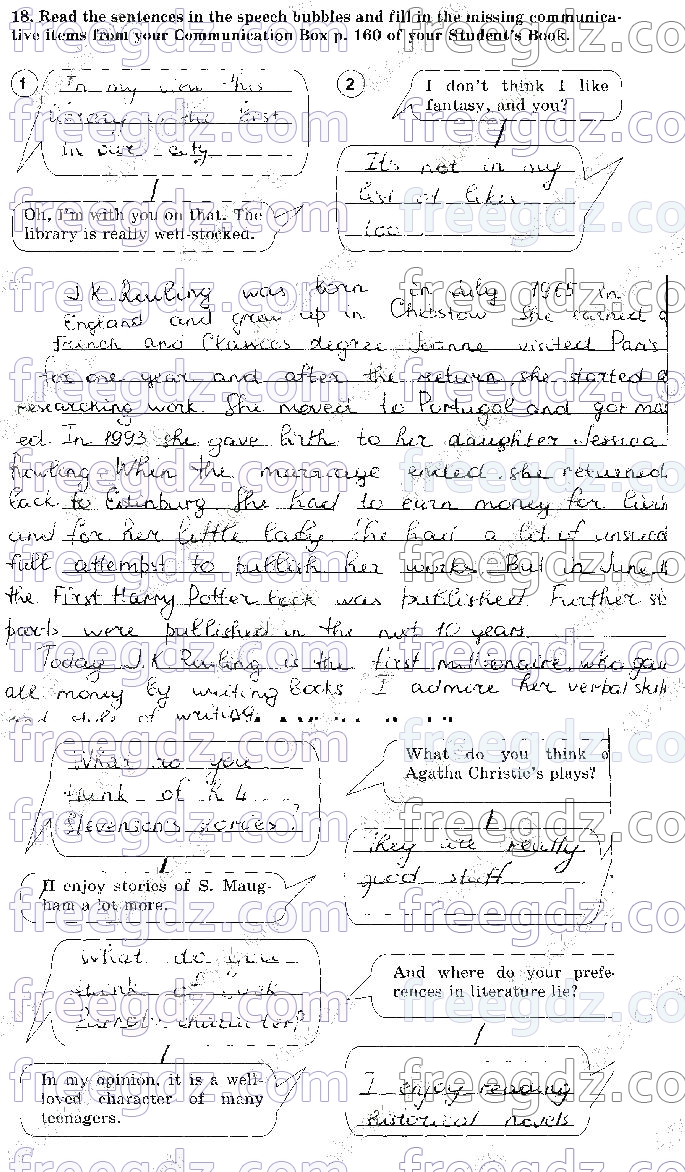 18. Read the sentences in the speech bubbles and fill in the missing communica-
tive items from your Communication Box p. 160 of your Student's Book.
1
In my view this
library is the best
in our city
Oh, I'm with you on that. The
library is really well-stocked.
2
I don't think I like
fantasy, and you?
It's not in my
list of likes
too
J.K. Rowling was born in July 1965 in
England and grew up in Chepstow She earned a
French and Classics degree Joanne visited Paris
for one year and after the return she started a
researching work. She moved to Portugal and got mar
ed. In 1993 she gave birth to her daughter Jessica
Rowling. When the marriage ended she returned
back to Edinburg She had to earn money for livin
and for her little lady She had a lot of unsucce
full attempt to publish her works. But in June
the First Harry Potter book was published Further six
parts were published in the next 10 years.
Today J.K Rowling is the first millionaire who gain
all money by writing books I admire her verbal skill
and style of writing
What do you
think of
Stevenson's stories?
I enjoy stories of S. Maug-
ham a lot more.
What do you think o
Agatha Christie's plays?
They are really
good stuff
What do you
think of such
character?
In my opinion, it is a well-
loved character of many
teenagers.
And where do your prefe-
rences in literature lie?
I enjoy reading
historical novels
freegdz.com